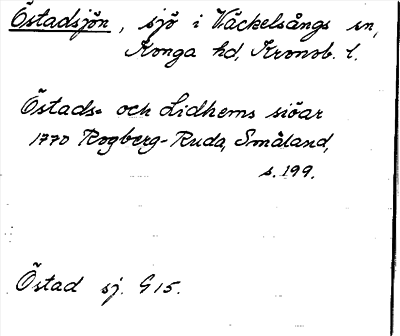 Östadsjön, sjö i Väckelsångs sn,
Konga hd, Kronob. l.
Östads- och Lidhems siöar
1770 Rogberg-Ruda, Småland,
s. 199.
Östad sj. G 15.